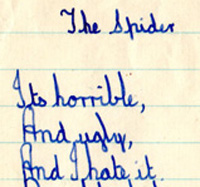 The Spider
Its horrible,
And ugly,
And I hate it.